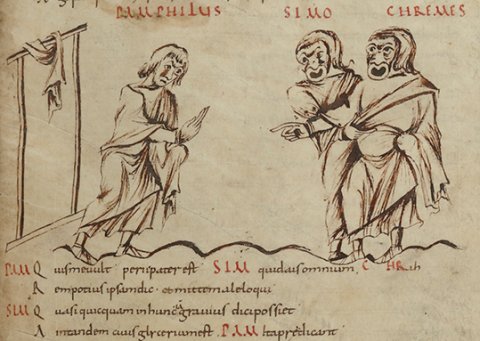 PAMPHILUS SIMO CHREMES
PAM Quis me uult perii pater est SIM quid ais omnium. CHR ah
Rem potius ipsam dic ac mitte male loqui
SIM Quasi quicquam in hunc grauius dici possiet
Ain tandem ciuis glycerium est PAM Ita predicant